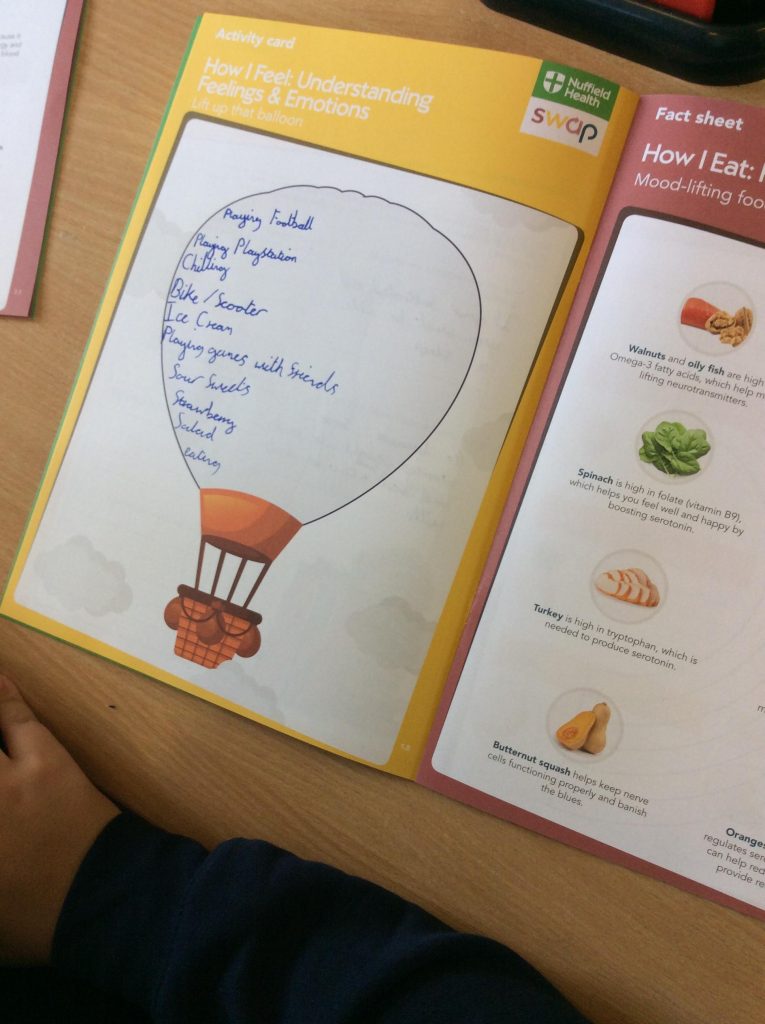 Activity card
How I Feel: Understanding
Feelings & Emotions
Lift up that balloon
Nuffield
Health
swap
Playing Football
Playing Playstation
Chilling
Bike / Scooter
Ice Cream
Playing games with friends
Sour Sweets
Strawberry
Salad
eating
Fact sheet
How I Eat:
Mood-lifting foo
Walnuts and oily fish are high
Omega-3 fatty acids, which help m
lifting neurotransmitters.
Spinach is high in folate (vitamin B9),
which helps you feel well and happy by
boosting serotonin.
Turkey is high in tryptophan, which is
needed to produce serotonin.
Butternut squash helps keep nerve
cells functioning properly and banish
the blues.
Oranges
regulates ser
can help red
provide re